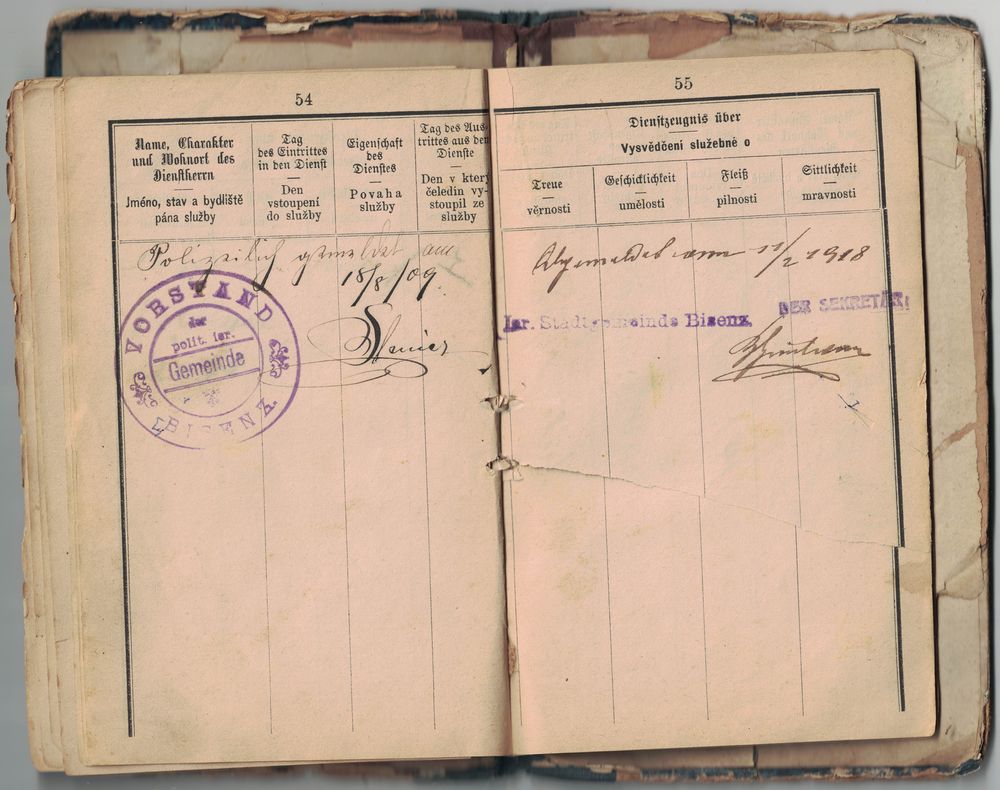 54
Name, Charakter
und Wohnort des
Dienstherrn
Jméno, stav a bydliště
pána služby
Tag
des Eintrittes
in den Dienst
Den
vstoupení
do služby
Eigenschaft
des
Dienstes
Povaha
služby
Tag des Aus-
trittes aus dem
Dienste
Den v který
čeledín vy-
stoupil ze
služby
Polizeilich gemeldet am
18/8/09.
VORSTAND
der
polit. isr.
Gemeinde
BISENZ.
55
Dienstzeugnis über
Vysvědčení služebné o
Treue
věrnosti
Geschicklichkeit
umělosti
Fleiß
pilnosti
Sittlichkeit
mravnosti
Abgemeldet am 11/2 1918
Isr. Stadtgemeinde Bisenz.
DER SEKRETÄR: